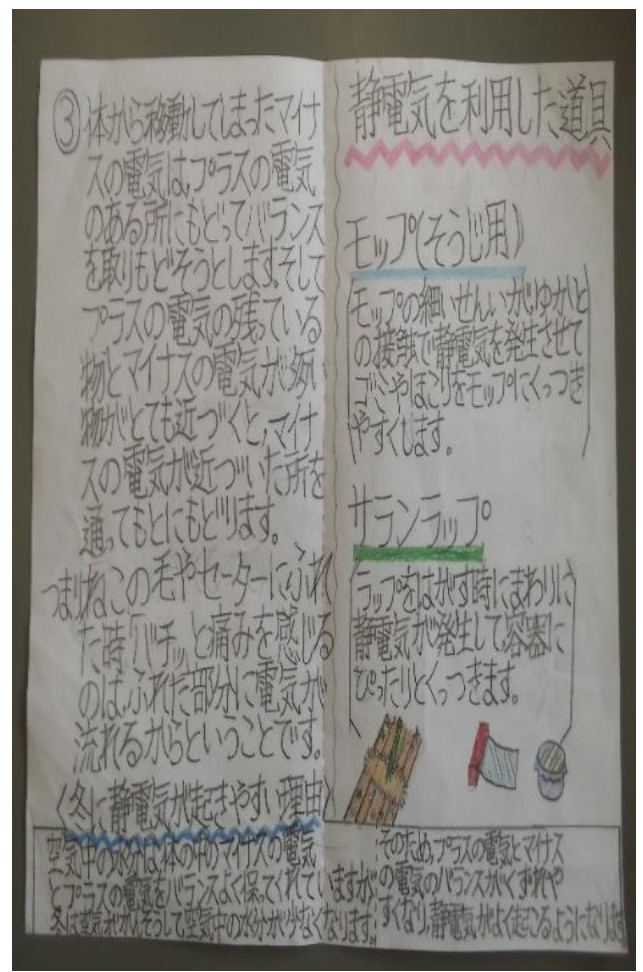 ③体から移動してしまったマイナ
スの電気は、プラスの電気
のある所にもどってバランス
を取りもどそうとします。そして
プラスの電気の残っている
物とマイナスの電気が多い
物がとても近づくと、マイナ
スの電気が近づいた所を
通ってもとにもどります。
つまりねこの毛やセーターにふれ
た時「バチッ」と痛みを感じる
のは、ふれた部分に電気が
流れるからということです。
〈冬に静電気が起きやすい理由〉
空気中の水分は、体の中のマイナスの電気
とプラスの電気をバランスよく保ってくれていますが
冬は空気がかんそうして空気中の水分が少なくなります。
そのため、プラスの電気とマイナス
の電気のバランスがくずれや
すくなり、静電気がよく起こるようになります
静電気を利用した道具
モップ(そうじ用)
モップの細いせんいがゆかと
の接触で静電気を発生させて
ゴミやほこりをモップにくっつき
やすくします。
サランラップ
ラップをはがす時にまわりに
静電気が発生して、容器に
ぴったりとくっつきます。